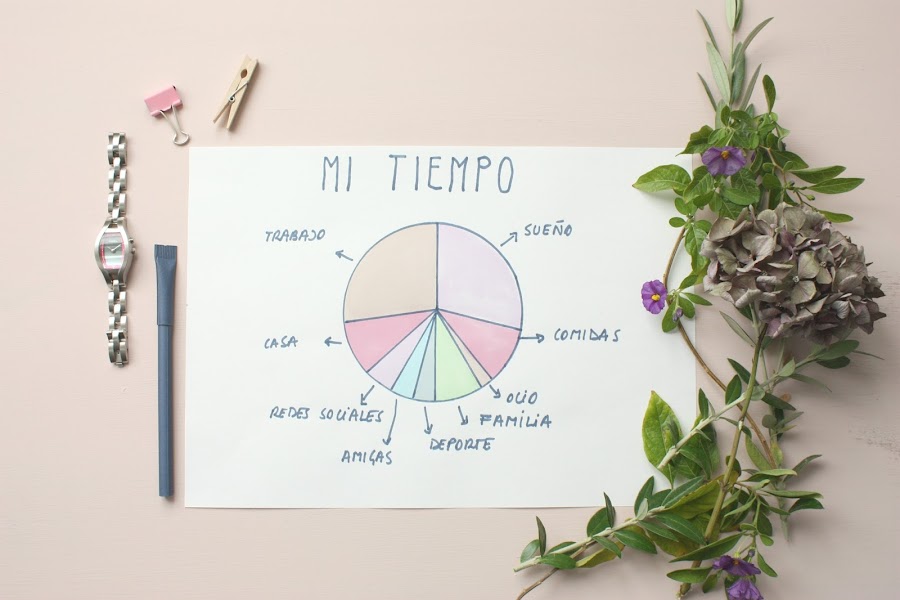 MI TIEMPO
TRABAJO
SUEÑO
CASA
COMIDAS
REDES SOCIALES
OCIO
FAMILIA
AMIGAS
DEPORTE